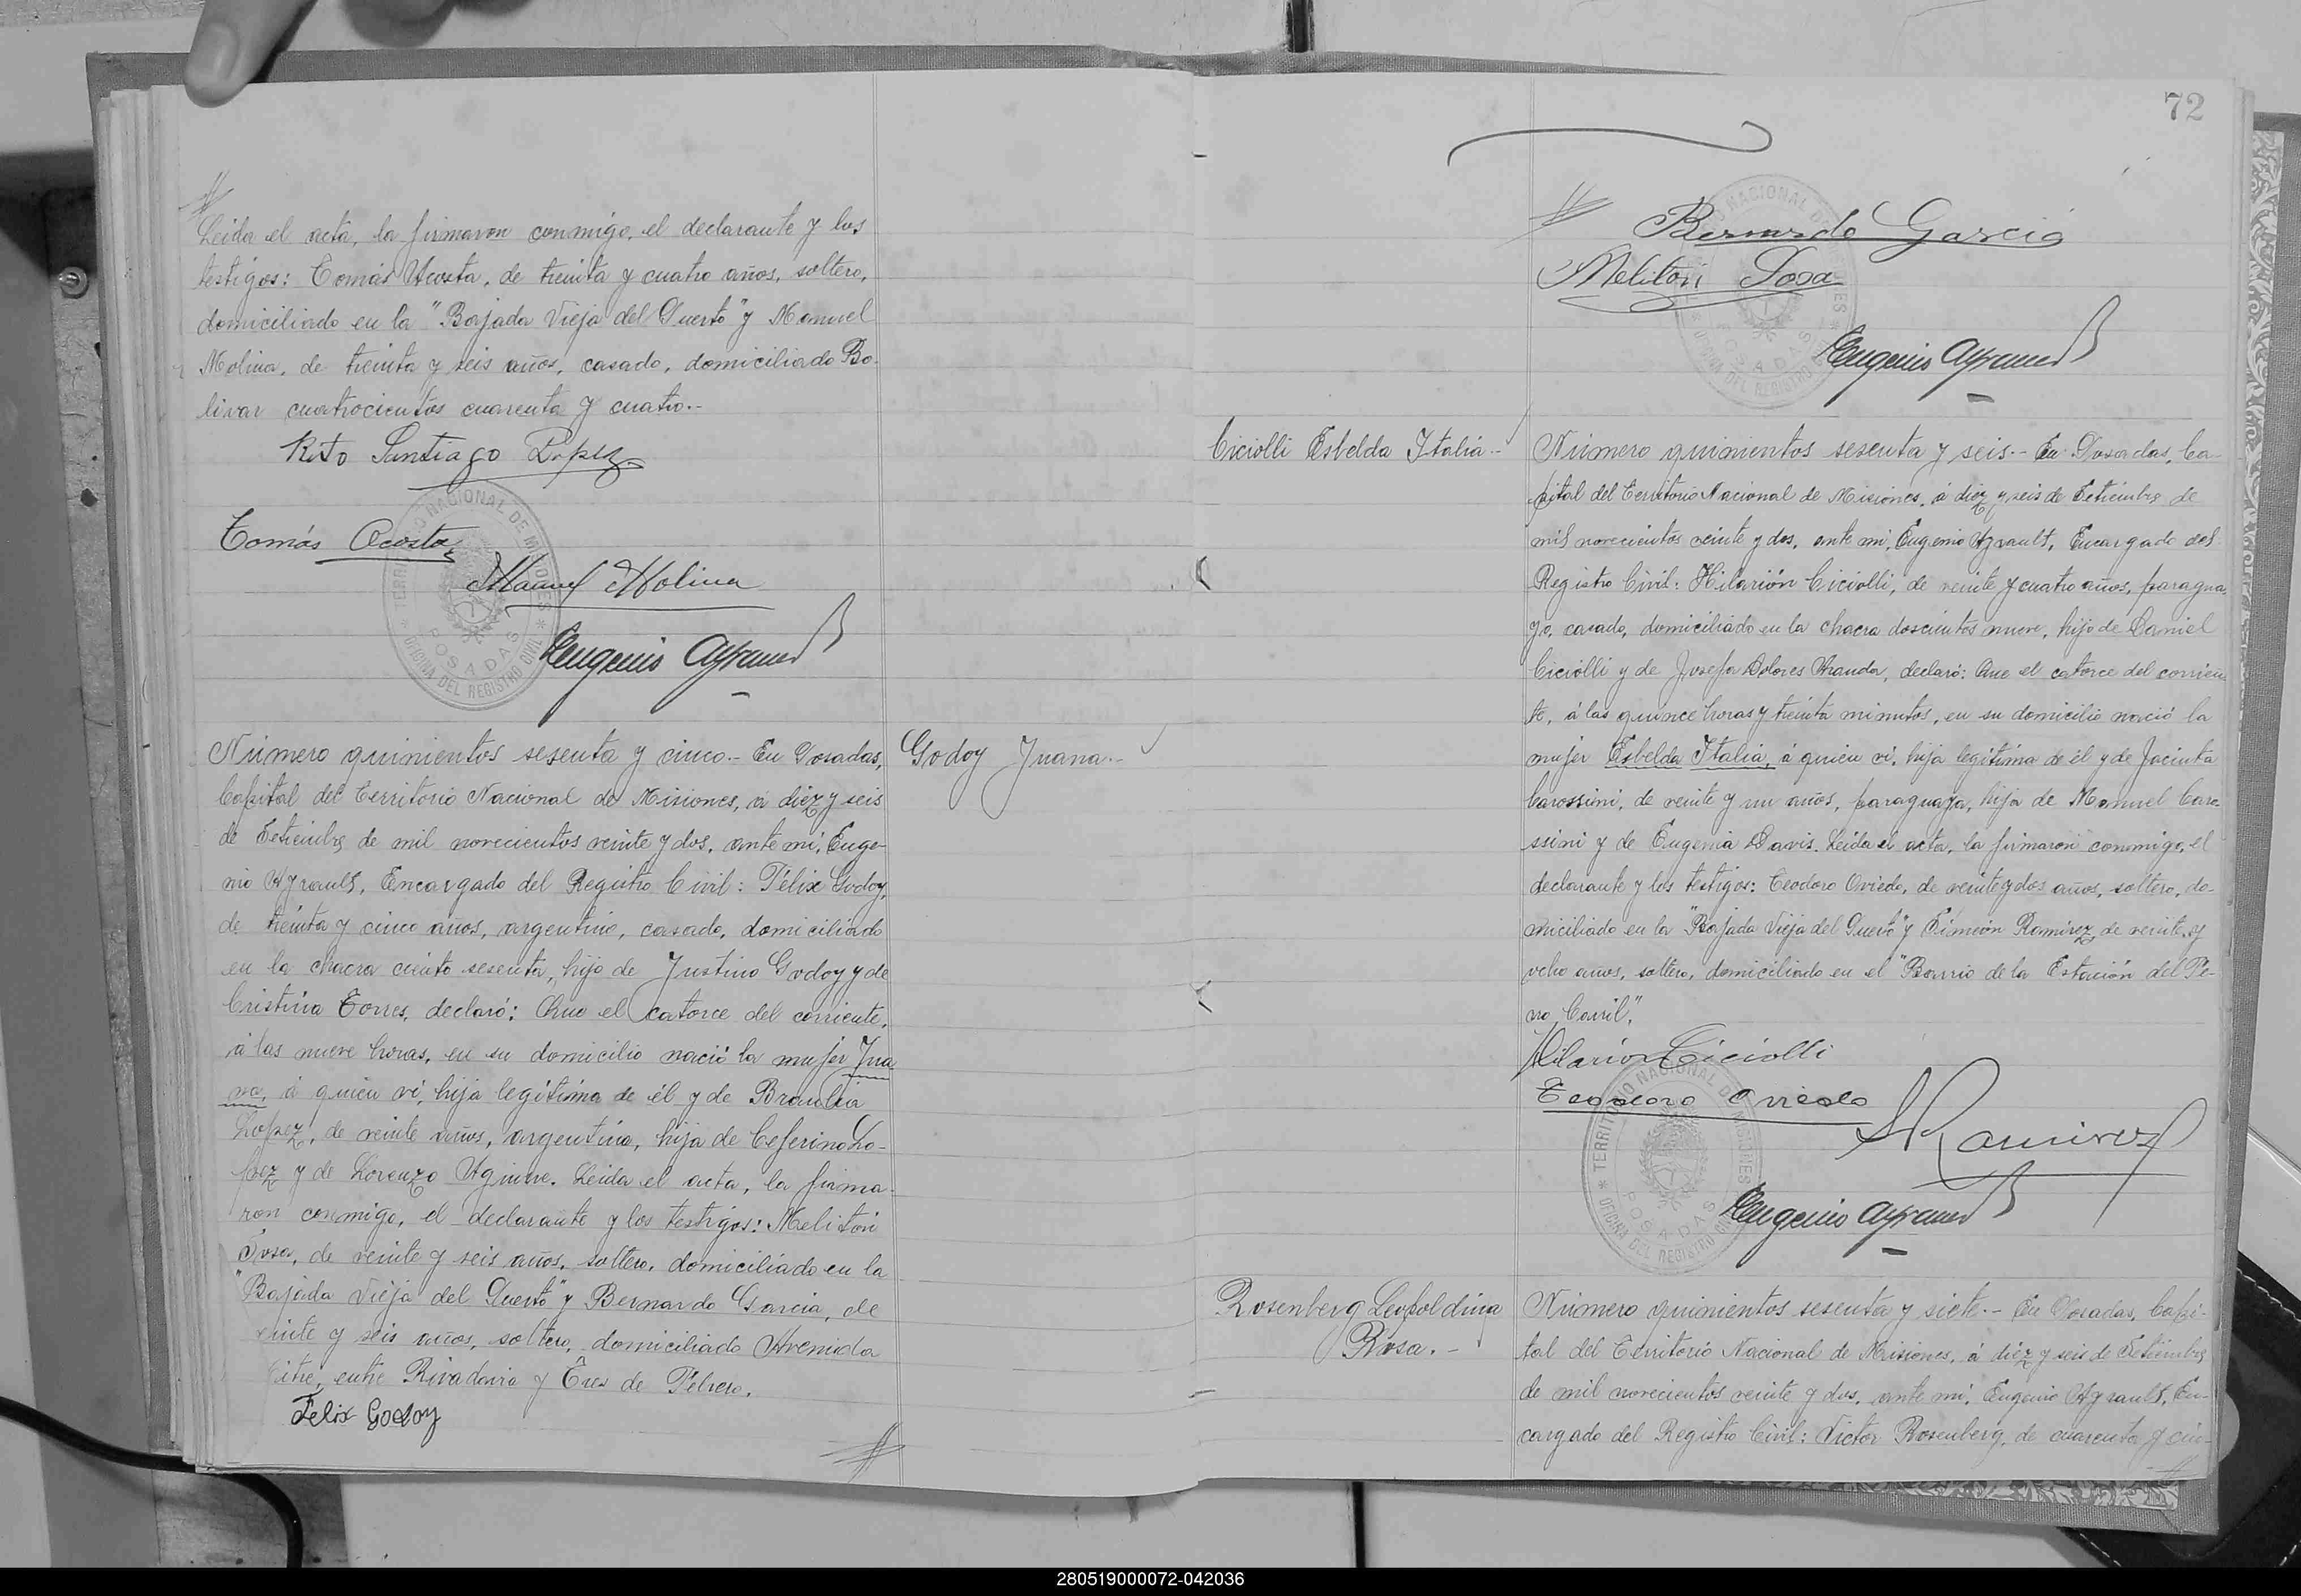 Leida el acta, la firmaron conmigo, el declarante y los
testigos: Tomás Acosta, de treinta y cuatro años, soltero,
domiciliado en la "Bajada Vieja del Puerto" y Manuel
Molina, de treinta y seis años, casado, domiciliado Bo-
livar cuatrocientos cuarenta y cuatro.-
Rito Santiago Lopez
Tomás Acosta
Manuel Molina
TERRITORIO NACIONAL DE MISIONES
POSADAS
* OFICINA DEL REGISTRO CIVIL *
Eugenio Ayrault
Número quinientos sesenta y cinco.- En Posadas,
Godoy Juana.-
Capital del Territorio Nacional de Misiones, á diez y seis
de Setiembre de mil novecientos veinte y dos, ante mí, Euge-
nio Ayrault, Encargado del Registro Civil: Félix Godoy,
de treinta y cinco años, argentino, casado, domiciliado
en la chacra ciento sesenta, hijo de Justino Godoy y de
Cristina Torres, declaró: Que el catorce del corriente,
á las nueve horas, en su domicilio nació la mujer Jua
na, á quien ví, hija legítima de él y de Braulia
Lopez, de veinte años, argentina, hija de Ceferino Lo-
pez y de Lorenza Aguirre. Leida el acta, la firma-
ron conmigo, el declarante y los testigos: Melitón
Sosa, de veinte y seis años, soltero, domiciliado en la
"Bajada Vieja del Puerto" y Bernardo Garcia, de
veinte y seis años, soltero, domiciliado Avenida
Mitre, entre Rivadavia y Tres de Febrero.
Felix Godoy
72
Bernardo Garcia
Melitón Sosa
NACIONAL DE MISIONES
POSADAS
* OFICINA DEL REGISTRO CIVIL *
Eugenio Ayrault
Ciciolli Esbelda Italia.-
Número quinientos sesenta y seis.- En Posadas, Ca-
pital del Territorio Nacional de Misiones, á diez y seis de Setiembre de
mil novecientos veinte y dos, ante mí, Eugenio Ayrault, Encargado del
Registro Civil: Hilarión Ciciolli, de veinte y cuatro años, paragua
yo, casado, domiciliado en la chacra doscientos nueve, hijo de Daniel
Ciciolli y de Josefa Dolores Aranda, declaró: Que el catorce del corrien
te, á las quince horas y treinta minutos, en su domicilio nació la
mujer Esbelda Italia, á quien ví, hija legítima de él y de Jacinta
Carossini, de veinte y un años, paraguaya, hija de Manuel Caro
ssini y de Eugenia Davis. Leida el acta, la firmaron conmigo, el
declarante y los testigos: Teodoro Oviedo, de veinte y dos años, soltero, do-
miciliado en la "Bajada Vieja del Puerto" y Simeón Ramirez, de veinte y
ocho años, soltero, domiciliado en el "Barrio de la Estación del Fe-
rro Carril".
Hilarión Ciciolli
Teodoro Oviedo
S Ramirez
TERRITORIO NACIONAL DE MISIONES
POSADAS
* OFICINA DEL REGISTRO CIVIL *
Eugenio Ayrault
Rosenberg Leopoldina
Rosa.-
Número quinientos sesenta y siete.- En Posadas, Capi-
tal del Territorio Nacional de Misiones, á diez y seis de Setiembre
de mil novecientos veinte y dos, ante mí, Eugenio Ayrault, En-
cargado del Registro Civil: Victor Rosenberg, de cuarenta y cin-
280519000072-042036